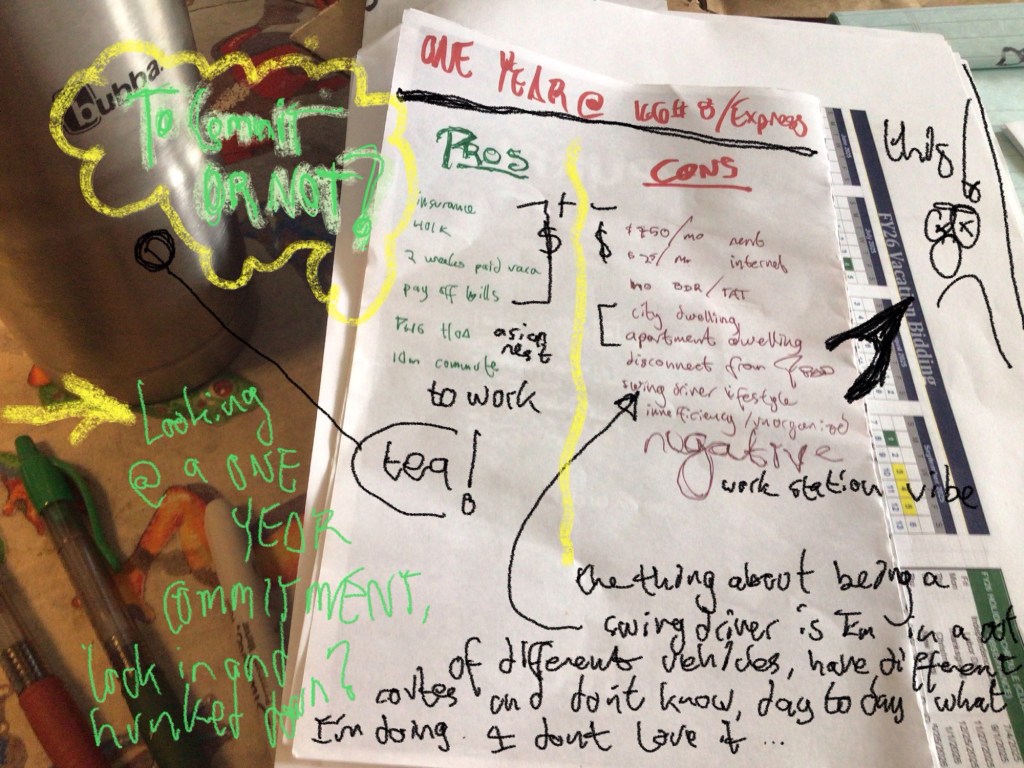 bubba
To Commit
OR NOT?
ONE YEAR @ B/Express
PROS
insurance
401K
2 weeks paid vaca
pay off bills
asian
nest
10m commute
to work
tea!
+
$
CONS
-
$
$750/mo rent
$25/mo internet
no
city dwelling
apartment dwelling
disconnect from
swing driver lifestyle
innefficiency/unorganized
negative
work station vibe
FY26 Vacation Bidding
Looking
@ a ONE
YEAR
COMMITMENT,
lock in and
hunker down?
the thing about being a
swing driver is I'm in a lot
of different vehicles, have different
routes and don't know, day to day what
I'm doing. I don't love it...